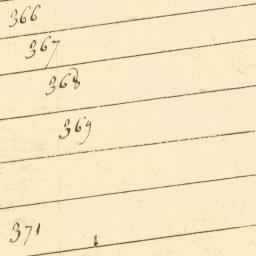 366
367
368
369
371